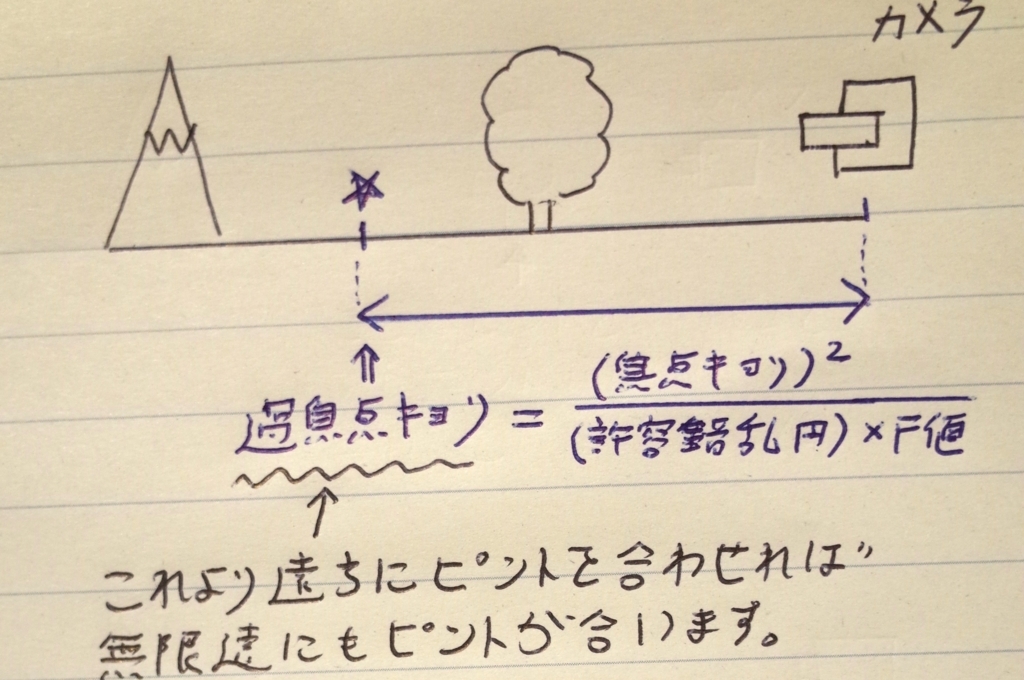 カメラ
過焦点キョリ = (焦点キョリ)² / (許容錯乱円)×F値
これより遠ちにピントを合わせれば
無限遠にもピントが合います。